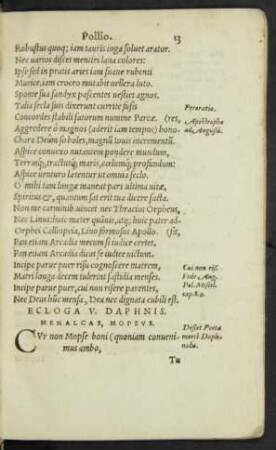 Pollio. 13
Robustus quoq; iam tauris ioga soluet arator.
Nec uarios discet mentiri lana colores:
Ipse sed in pratis aries iam suaue rubenti
Murice, iam croceo mutabit uellera luto.
Sponte sua sandyx pascentes uestiet agnos.
Talia secla suis dixerunt currite fusis
Concordes stabili fatorum numine Parcæ. (res,
Aggredere ô magnos (aderit iam tempus) hono-
Chara Deûm soboles, magnũ Iouis incrementũ.
Aspice conuexo nutantem pondere mundum,
Terrasq;, tractusq; maris, cœlumq; profundum:
Aspice uenturo lætentur ut omnia seclo.
O mihi tam longæ maneat pars ultima uitæ,
Spiritus &, quantum sat erit tua dicere facta.
Non me carminib. uincet nec Thracius Orpheus,
Nec Linus: huic mater quãuis, atq; huic pater ad-
Orphei Calliopeia, Lino formosus Apollo. (sit,
Pan etiam Arcadia mecum si iudice certet,
Pan etiam Arcadia dicat se iudice uictum.
Incipe parue puer risu cognoscere matrem,
Matri longa decem tulerunt fastidia menses.
Incipe parue puer, cui non risere parentes,
Nec Deus hũc mensa, Dea nec dignata cubili est.
ECLOGA V. DAPHNIS.
MENALCAS, MOPSVS.
CVr non Mopse boni (quoniam conueni-
mus ambo,
Tu
Peroratio.
Apostrophe
ad Augustũ.
Cui non ris.
Vide Ang.
Pol. Miscel.
cap. 89.
Deflet Poeta
mortẽ Daph-
nidis.